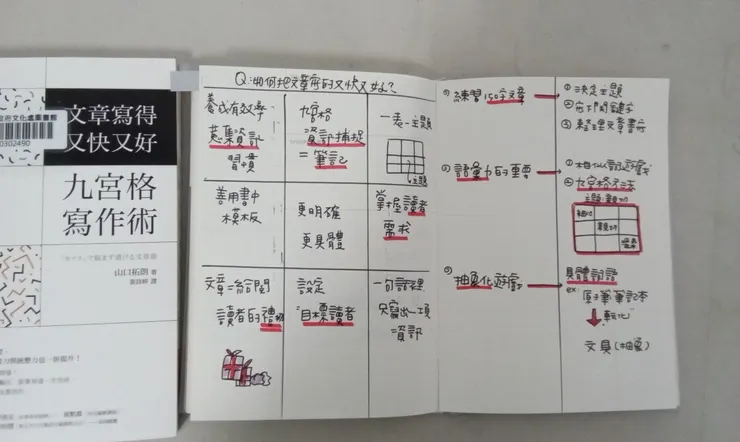 文章寫得
又快又好
九宮格
寫作術
山口拓朗 著
0302490
Q:如何把文章寫的又快又好?
養成有效率
蒐集資訊
習慣
九宮格
資訊捕捉
=筆記
一表一主題
主題
善用書中
模板
更明確
更具體
掌握讀者
需求
文章=給問
讀者的禮物
設定
目標讀者
一句話裡
只寫出一項
資訊
練習150字文章
①決定主題
②寫下關鍵字
③整理文章書寫
語彙力的重要
①相似詞遊戲
②九宮格方法
主題:親切
親切
抽象化遊戲
具體詞語
ex 原子筆筆記本
轉化
文具(抽象)